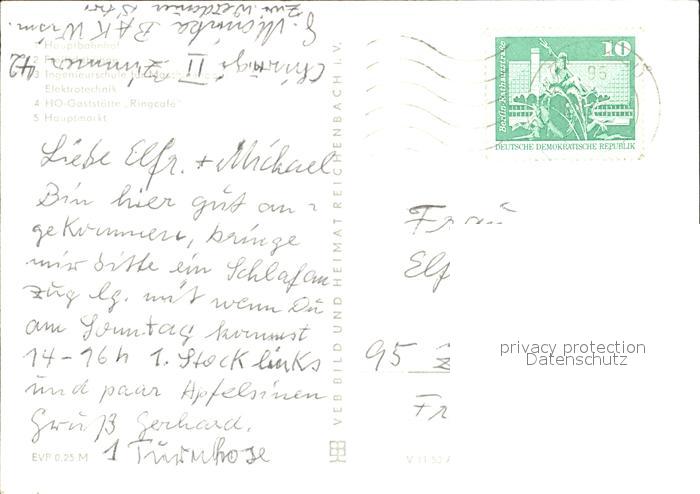 Hauptbahnhof
3 Ingenieurschule für
Elektrotechnik
4 HO-Gaststätte „Ringcafé"
5 Hauptmarkt
Chirurgi II Zimmer 42
Liebe Elfr. + Michael
Bin hier gut an-
gekommen, bringe
mir bitte ein Schlafan
zug lg. mit wenn Du
am Sonntag kommst
14-16h 1. Stock links
und paar Apfelsinen
Gruß Gerhard.
1 Turnhose
EVP 0,25 M
VEB BILD UND HEIMAT REICHENBACH i. V.
Berlin-Rathausstraße
10
DEUTSCHE DEMOKRATISCHE REPUBLIK
95
Frau
Elf
95 Z
Fr
privacy protection
Datenschutz
V 11 50 A